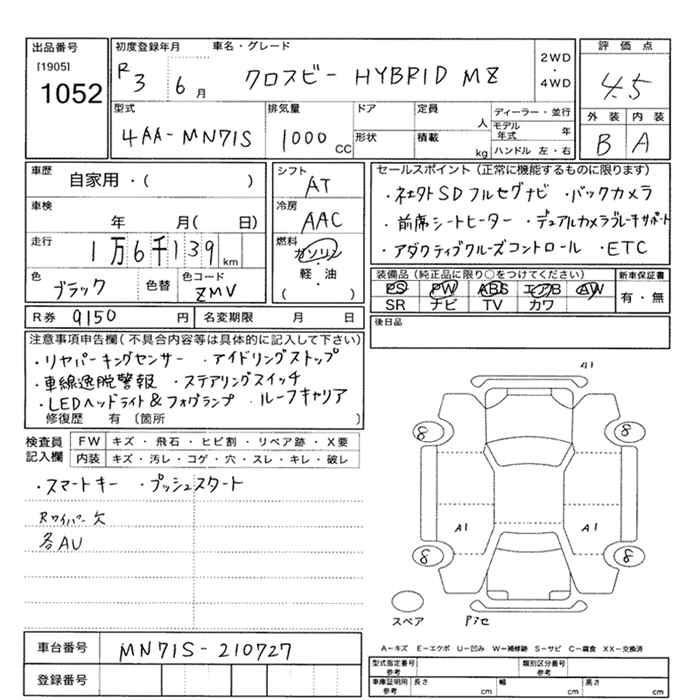 出品番号 初度登録年月 車名・グレード 2WD・4WD 評価点
[1905] 1052 R3 6月 クロスビー HYBRID MZ 4.5
型式 排気量 ドア 定員 人 ディーラー・並行 外装 内装
4AA-MN71S 1000CC 形状 積載 kg モデル年式 年 B A
ハンドル 左・右
車歴 自家用・( ) シフト AT セールスポイント(正常に機能するものに限ります)
・社外SDフルセグナビ ・バックカメラ
車検 年 月( 日) 冷房 AAC ・前席シートヒーター ・デュアルカメラブレーキサポート
走行 1万6千139km 燃料 ガソリン・軽・油 ( ) ・アダクティブクルーズコントロール ・ETC
色 ブラック 色替 色コード ZMV 装備品(純正品に限り○をつけてください) 新車保証書
PS PW ABS エアB AW 有・無
SR ナビ TV カワ
R券 9150円 名変期限 月 日 後日品
注意事項申告欄(不具合内容等は具体的に記入して下さい)
・リヤパーキングセンサー ・アイドリングストップ
・車線逸脱警報 ・ステアリングスイッチ
・LEDヘッドライト&フォグランプ ・ルーフキャリア
修復歴 有(箇所 )
検査員記入欄 FW キズ・飛石・ヒビ割・リペア跡・X要
内装 キズ・汚レ・コゲ・穴・スレ・キレ・破レ
・スマートキー ・プッシュスタート
Rワイパー欠
各AU
A1
8 8
A1 A1
8 8
スペア
A-キズ E-エクボ U-凹み W-補修跡 S-サビ C-腐食 XX-交換済
車台番号 MN71S-210727
登録番号
型式指定番号 参考 類別区分番号 参考
車庫証明用 参考 長さ cm 幅 cm 高さ cm